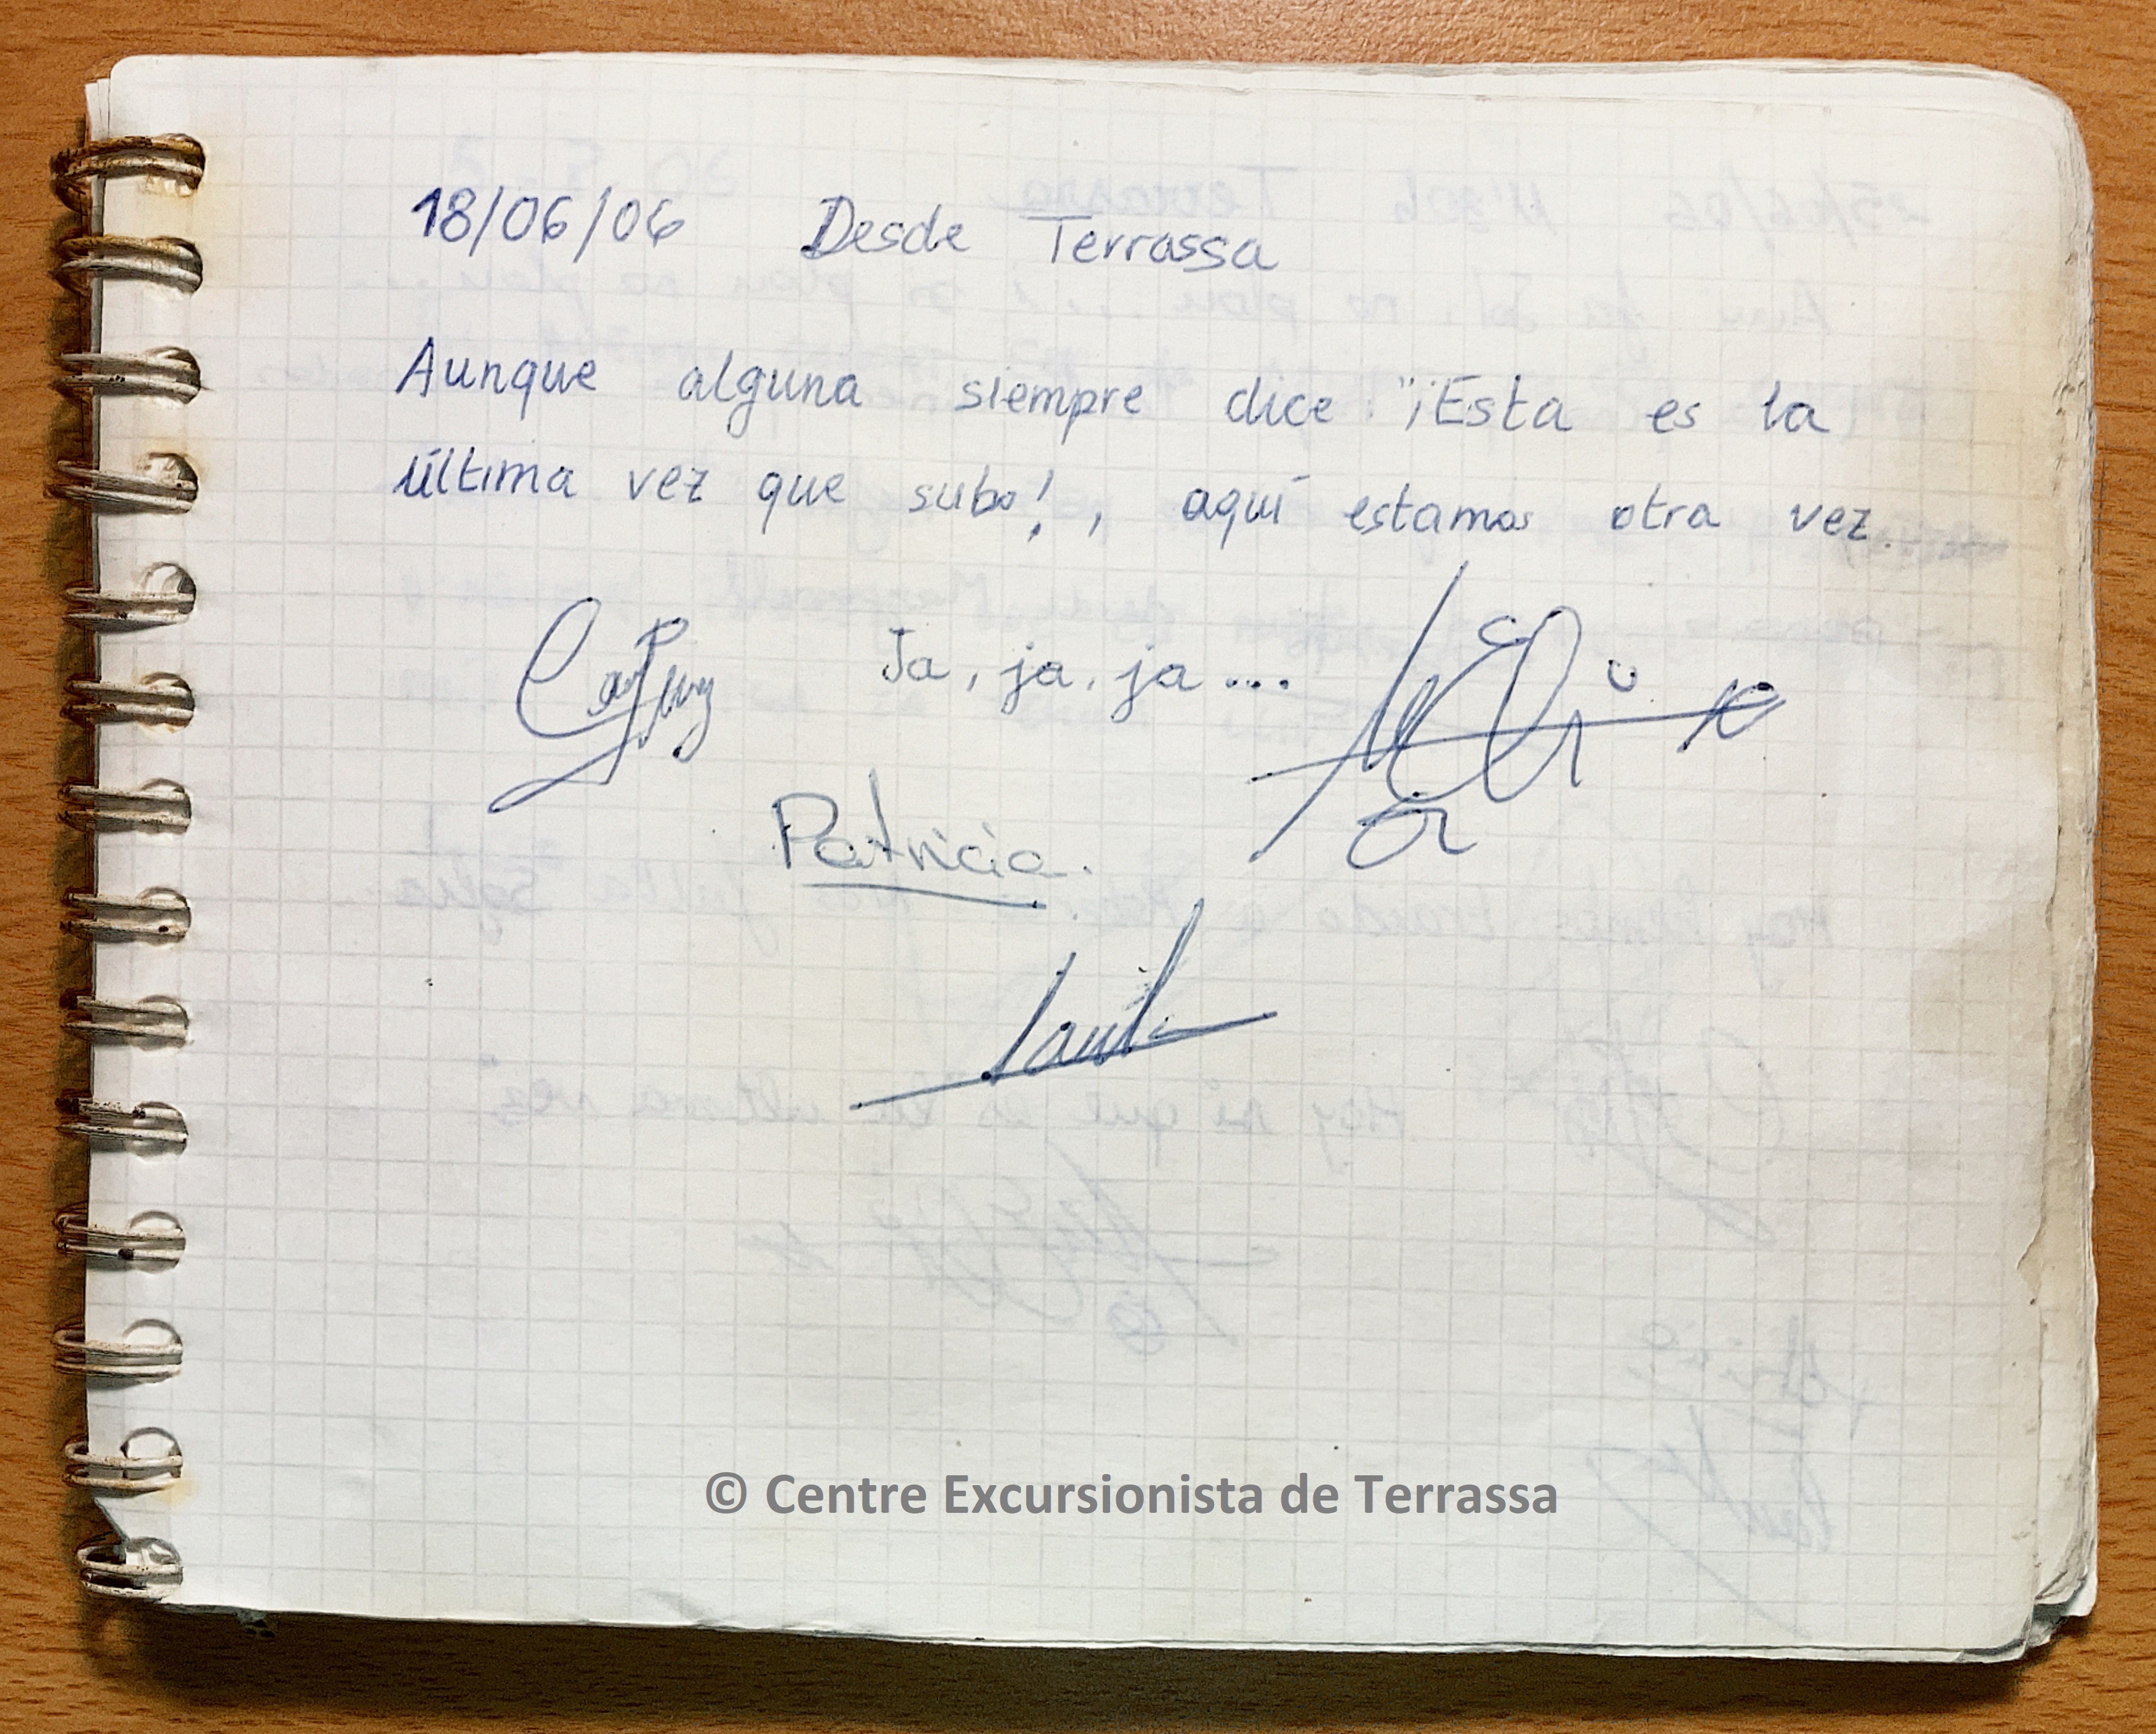 18/06/06 Desde Terrassa
Aunque alguna siempre dice "¡Esta es la
última vez que subo!, aquí estamos otra vez.
Ja, ja, ja...
Patricia.
© Centre Excursionista de Terrassa